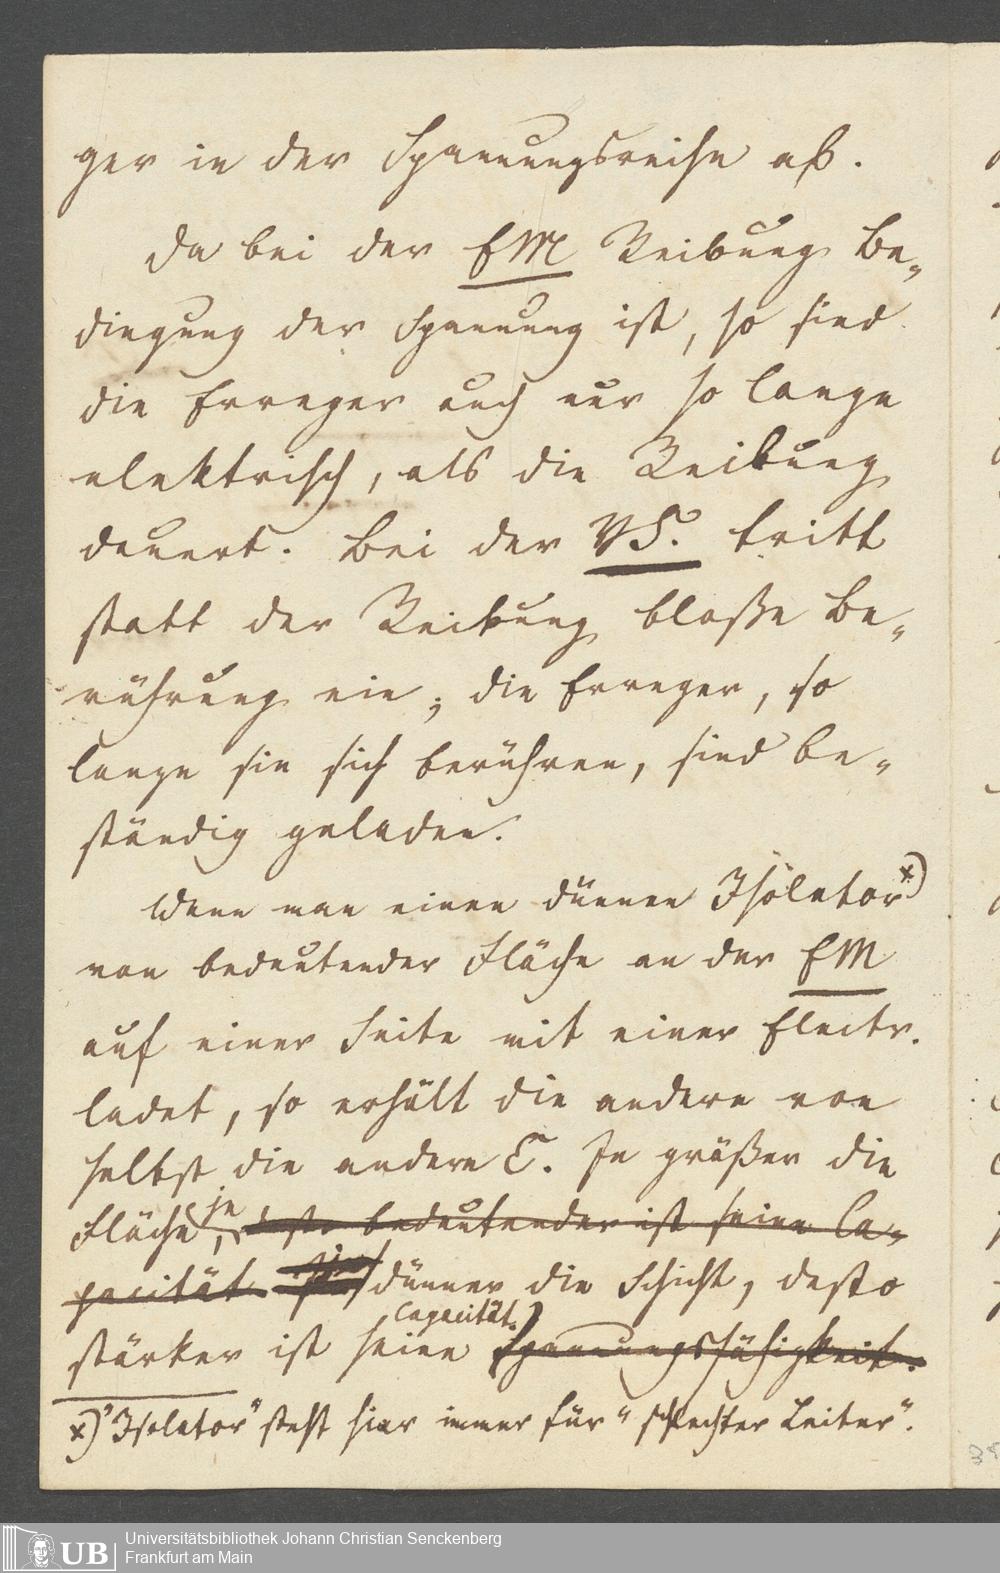 ger in der Spannungsreihe ab.
Da bei der EM Reibung Be-
dingung der Spannung ist, so sind
die Erreger auch nur so lange
elektrisch, als die Reibung
dauert. Bei der VS. tritt
statt der Reibung bloße Be-
rührung ein; die Erreger, so
lange sie sich berühren, sind be-
ständig geladen.
Wenn man einen dünnen Isolator x)
von bedeutender Fläche an der EM
auf einer Seite mit einer Electr.
ladet, so erhält die andere von
selbst die andere E. Je größer die
Fläche, je desto bedeutender ist seine Ca-
pacität dünner die Schicht, desto
stärker ist seine Capacität. Spannungsfähigkeit.
x) "Isolator" steht hier immer für "schlechter Leiter".
UB Universitätsbibliothek Johann Christian Senckenberg
Frankfurt am Main